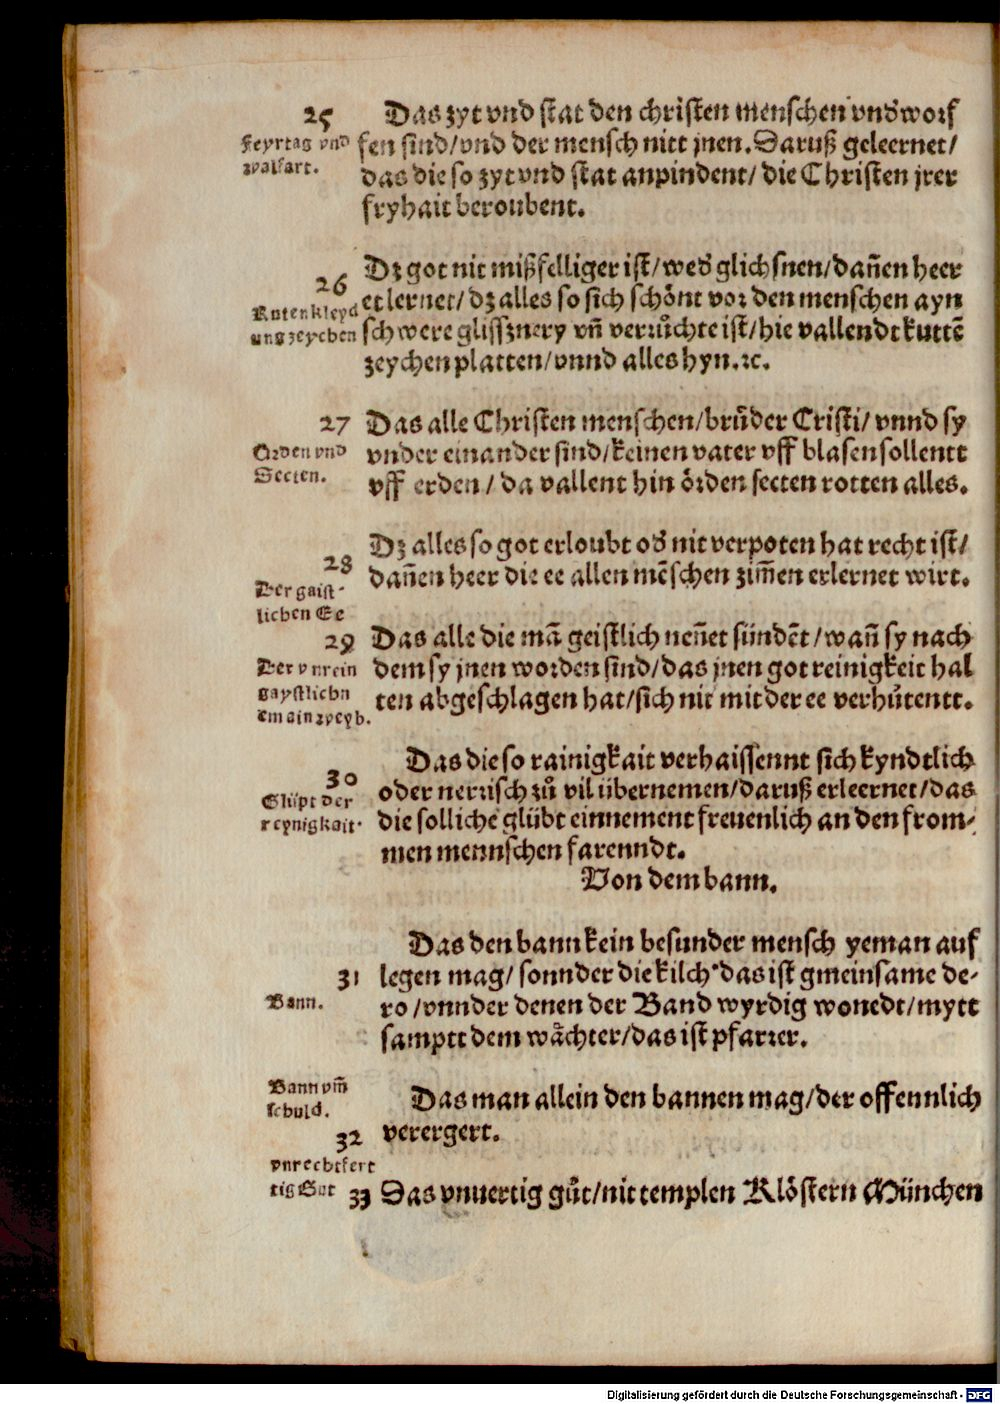 25 Das zyt vnd stat den christen menschen vnd̕worf
Feyrtag vnd fen sind/vnd der mensch nitt jnen. Daruß geleernet/
walfart. das die so zyt vnd stat anpindent/ die Christen jrer
fryhait beroubent.
Dz got nit mißfelliger ist/wed̕ glichsnen/dañen heer
26 et lernet/ dz alles so sich schönt vor den menschen ayn
Kutenkleyd
schwere glissznery vñ verrůchte ist/hie vallendt kuttē
ung zeychen
zeychen platten/vnnd alles hyn.ꝛc.
27 Das alle Christen menschen/brůder Cristi/ vnnd sy
Orden vnd vnder einander sind/keinen vater vff blasen sollentt
Secten. vff erden/ da vallent hin örden secten rotten alles.
Dz alles so got erloubt od̕ nit verpoten hat recht ist/
28 dañen heer die ee allen mēschen zim̄en erlernet wirt.
Der gaist-
lichen Ee
29 Das alle die mā geistlich neñet sündēt/wañ sy nach
Der vnrein dem sy jnen worden sind/das jnen got reinigkeit hal
gaystlichn ten abgeschlagen hat/sich nit mit der ee verhůtentt.
emainweyb.
Das die so rainigkait verhaissennt sich kyndtlich
30 oder nerrisch zů vil übernemen/daruß erleernet/das
Glüpt der die solliche glübt einnement freuenlich an den from-
reynigkait. men mennschen farenndt.
Von dem bann.
Das den bann kein besunder mensch yeman auf
31 legen mag/ sonnder die kilch das ist gmeinsame de-
Bann. ro/vnnder denen der Band wyrdig wonedt/mytt
samptt dem wåchter/das ist pfarrer.
Bann vm̄
schuld. Das man allein den bannen mag/der offennlich
32 verergert.
vnrechtfert
tig Gut 33 Das vnuertig gůt/nit templen Klöstern München
Digitalisierung gefördert durch die Deutsche Forschungsgemeinschaft - DFG